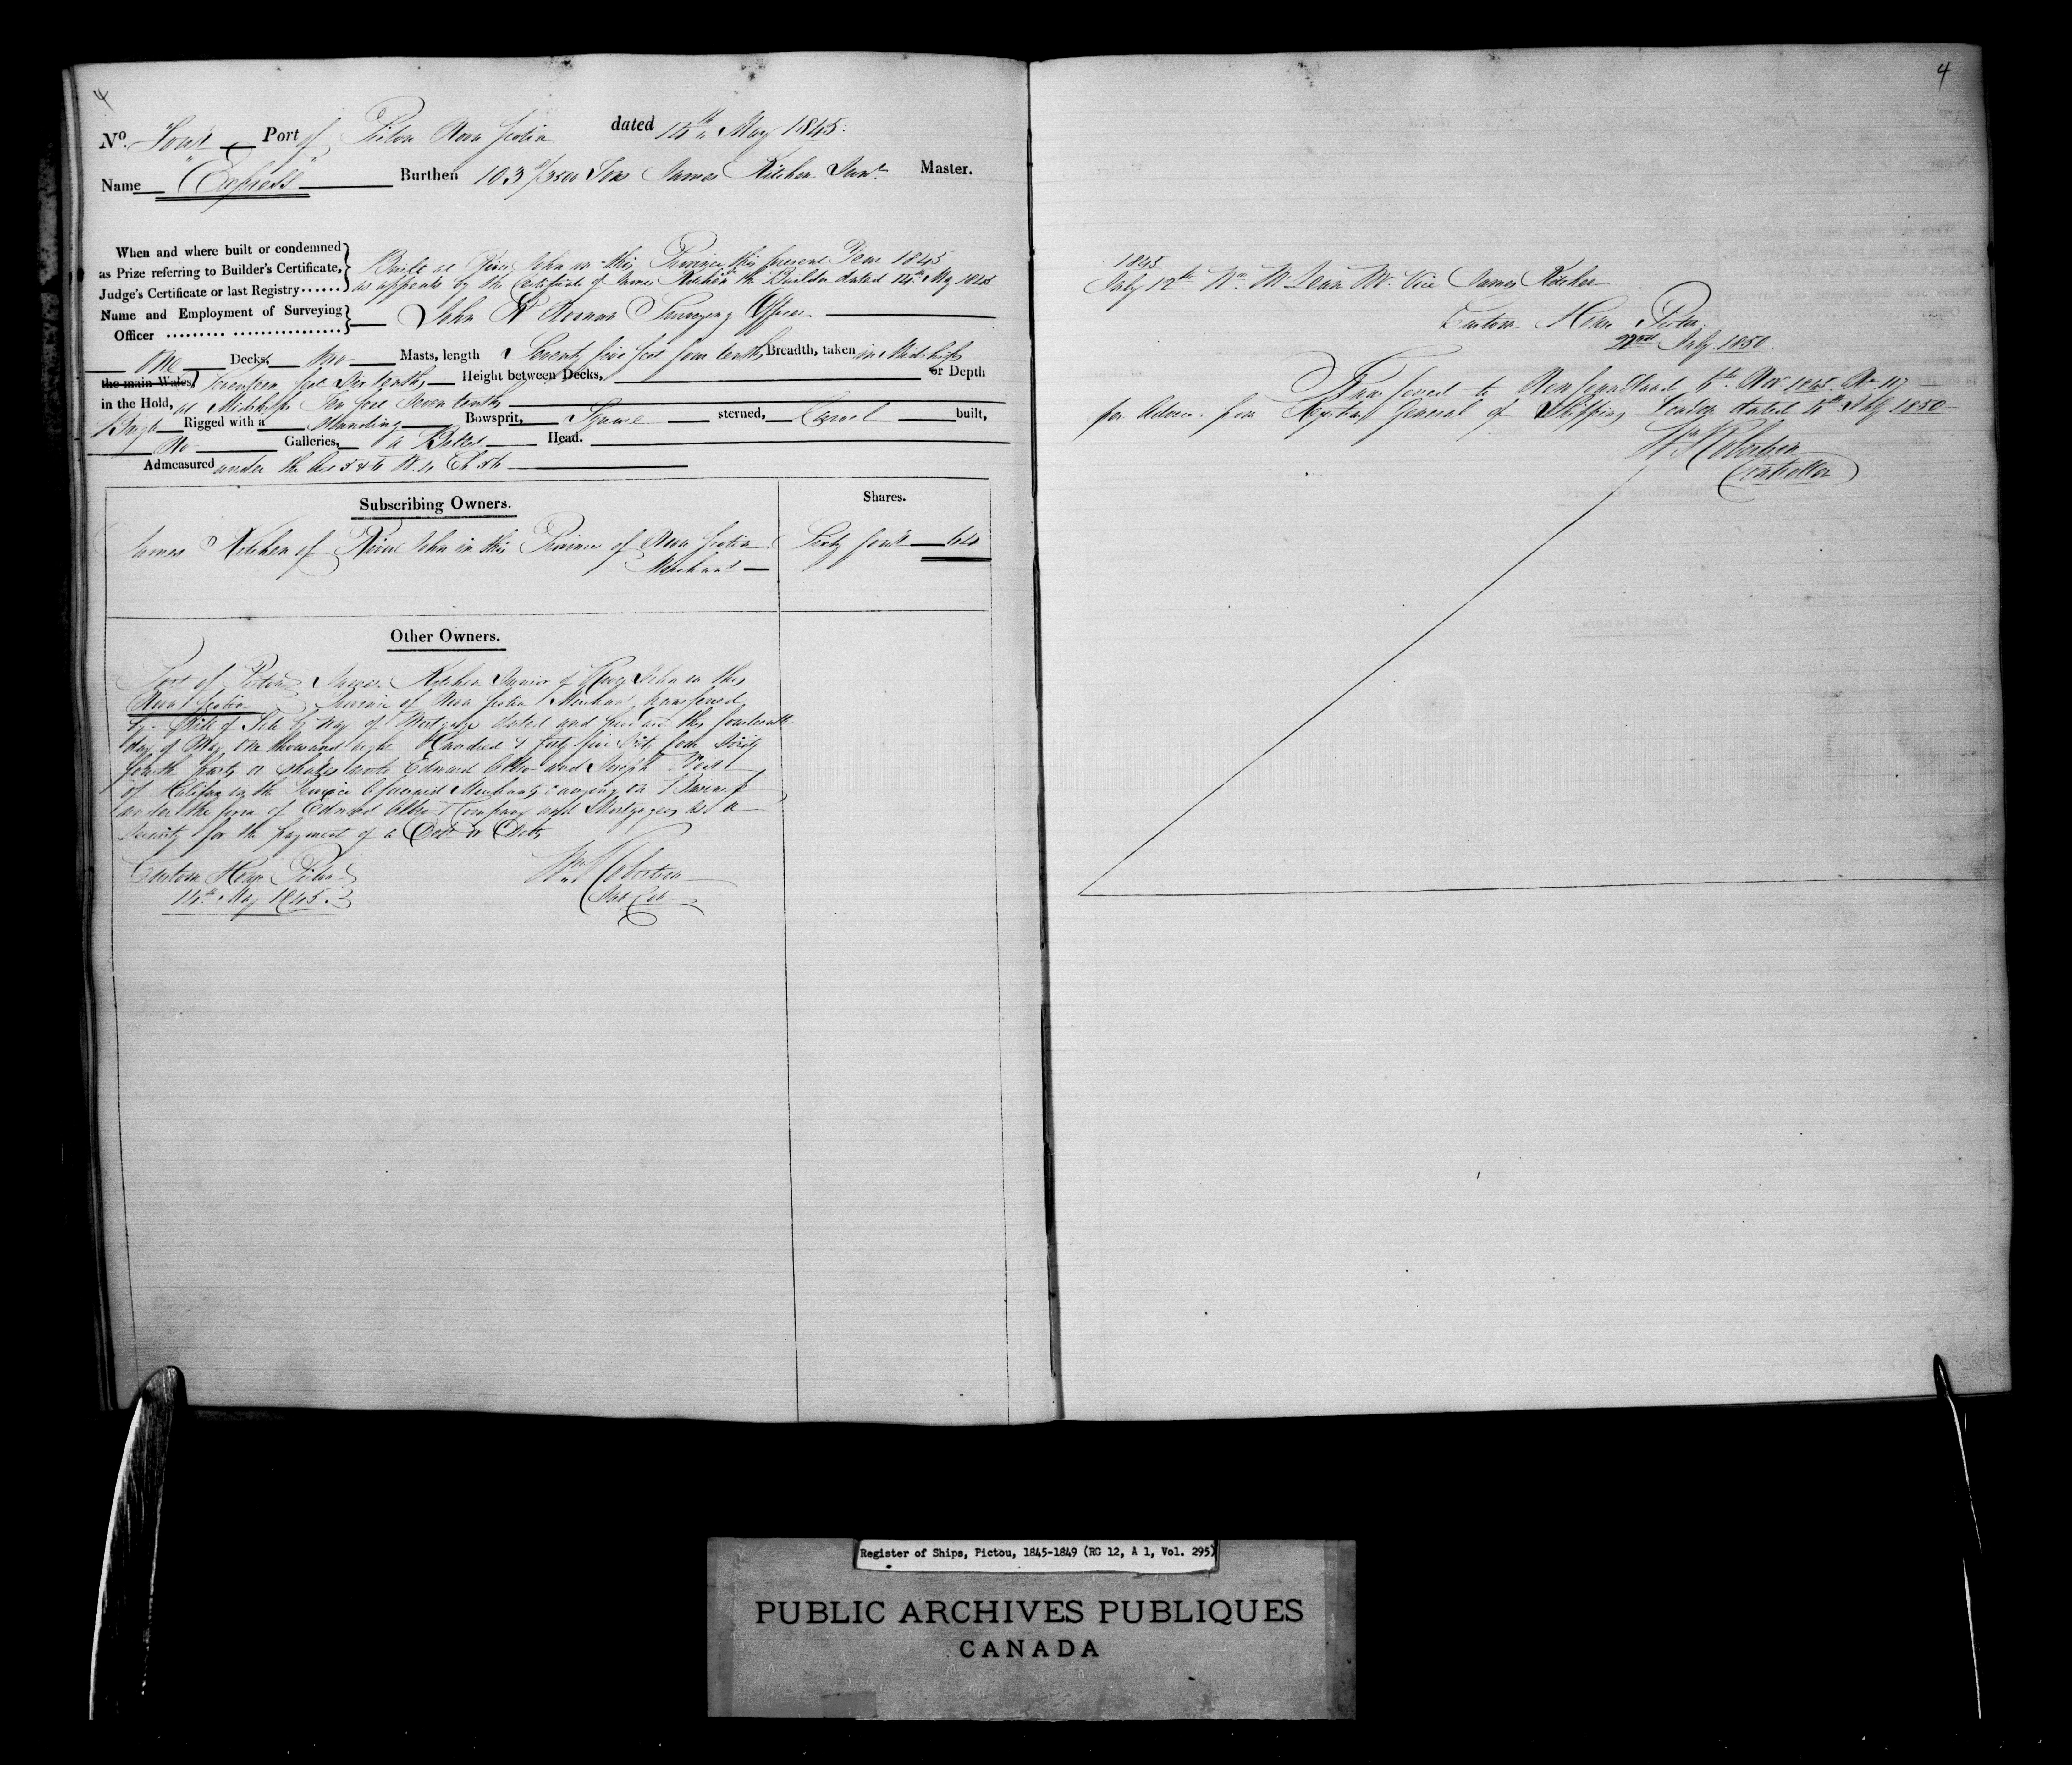 4
No. Four Port of Pictou Nova Scotia dated 14th May 1845.
Name "Express" Burthen 103 /3500 Tons James Kitchen Junr. Master.
When and where built or condemned
as Prize referring to Builder's Certificate,
Judge's Certificate or last Registry......
Built at River John in this Province this present Year 1845
as appears by the Certificate of James Kitchen the Builder dated 14th May 1845
Name and Employment of Surveying
Officer ......... ................
John Surveying Officer
One Decks, Two Masts, length Seventy five feet four tenths Breadth, taken in Midships
the main Wales, Seventeen feet Six tenths Height between Decks, or Depth
in the Hold, at Midships Ten feet Seven tenths
Brigt Rigged with a Standing Bowsprit, Square sterned, Carvel built,
No Galleries, a Billet Head.
Admeasured under the Act 5 & 6 W. 4 Ch 56
Subscribing Owners.
Shares.
James Kitchen of River John in this Province of Nova Scotia
Merchant
Sixty four 64
Other Owners.
Port of Pictou James Kitchen Junior of River John in the
Nova Scotia Province of Nova Scotia Merchant transferred
by Bill of Sale by Way of Mortgage dated and this fourteenth
day of May One thousand eight Hundred & forty five Sixty four Sixty
fourth parts or shares unto Edward Allison and Joseph
of Halifax in the Province aforesaid Merchants carrying on Business
under the firm of Edward Allison & Company and Mortgagees as a
Security for the payment of a Debt or Debts
Custom House Pictou
14th May 1845.
Wm Robertson
4
1845
July 12th. Wm. McLean Mr. Vice James Kitchen
Custom House Pictou
22nd July 1850
Transferred to Newfoundland 6th. Nov 1845. No. 117
per Advice from Registrar General of Shipping London dated 4th July 1850
Wm Robertson
Controller
Register of Ships, Pictou, 1845-1849 (RG 12, A 1, Vol. 295)
PUBLIC ARCHIVES PUBLIQUES
CANADA